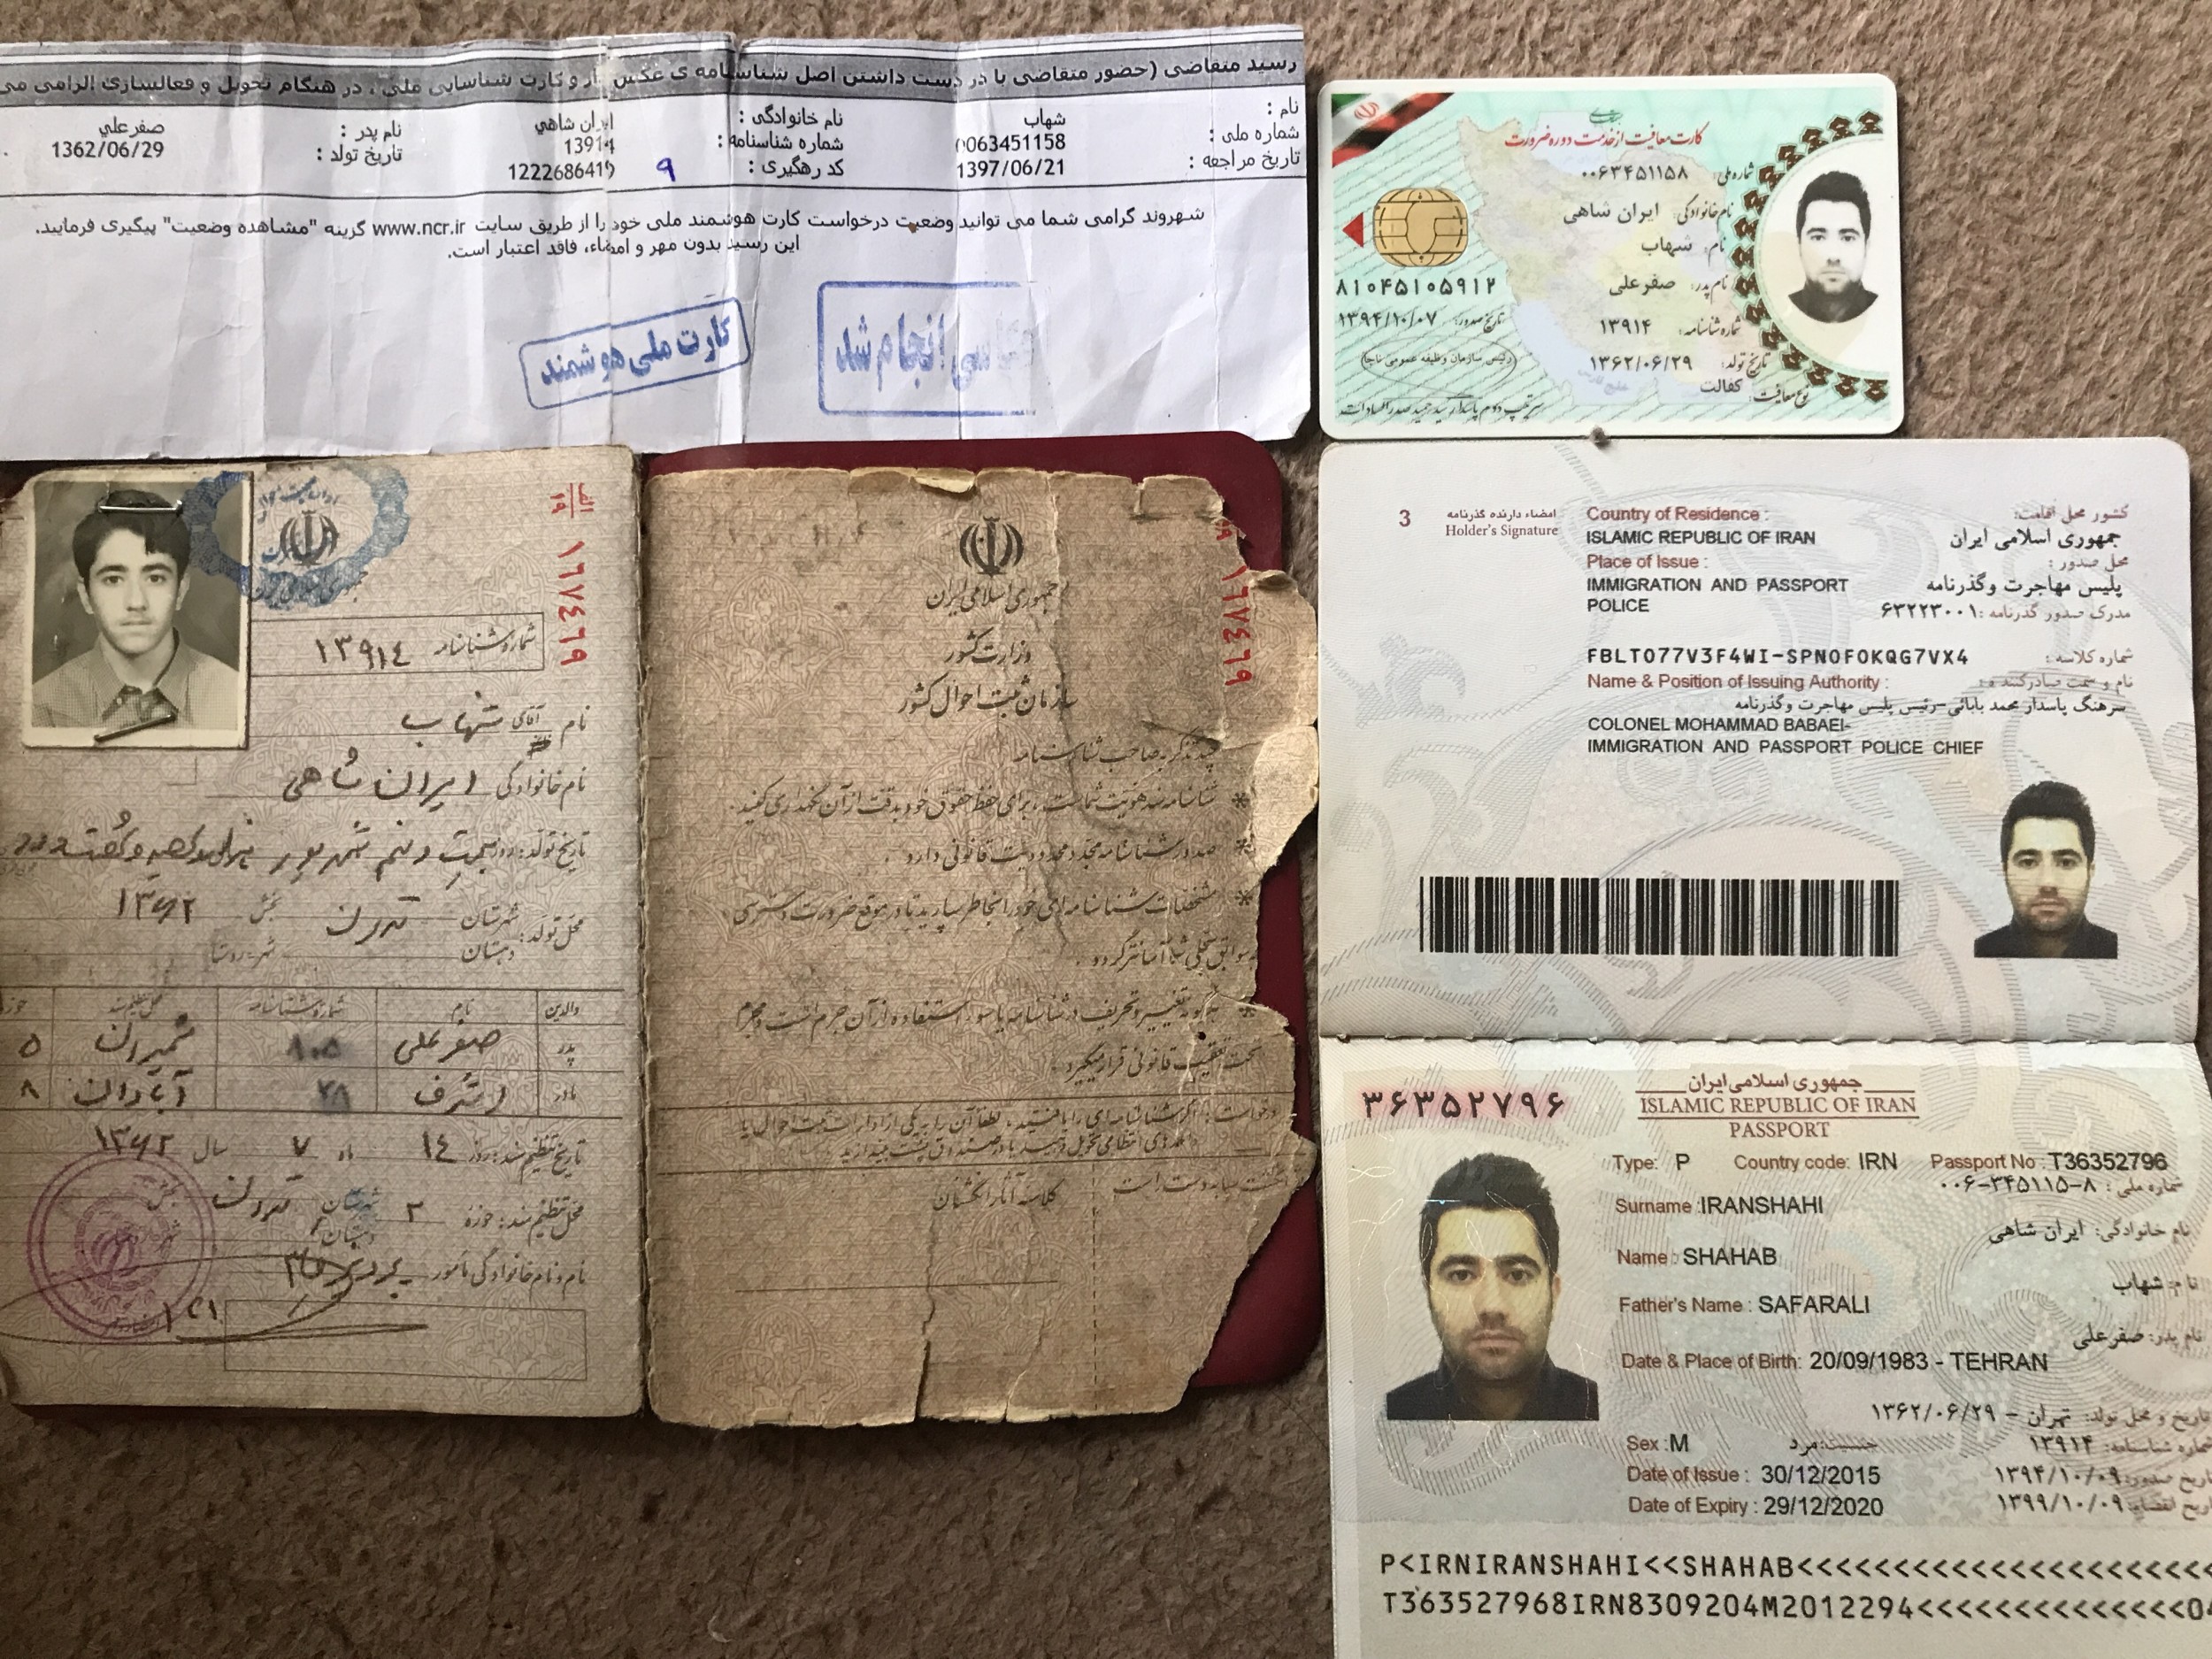 رسید متقاضی (حضور متقاضی با در دست داشتن اصل شناسنامه ی عکس دار و کارت شناسایی ملی، در هنگام تحویل و فعالسازی الزامی می
نام : شهاب نام خانوادگی : ایران شاهي نام پدر : صفرعلي
شماره ملی : 0063451158 شماره شناسنامه : 13914 تاریخ تولد : 1362/06/29
تاریخ مراجعه : 1397/06/21 کد رهگیری : 1222686419 9
شهروند گرامی شما می توانید وضعیت درخواست کارت هوشمند ملی خود را از طریق سایت www.ncr.ir گزینه "مشاهده وضعیت" پیگیری فرمایید.
این رسید بدون مهر و امضاء، فاقد اعتبار است.
انجام شد
کارت ملی هوشمند
کارت معافیت از خدمت دوره ضرورت
شماره ملی: ۰۰۶۳۴۵۱۱۵۸
نام خانوادگی: ایران شاهی
نام: شهاب
نام پدر: صفرعلی
شماره شناسنامه: ۱۳۹۱۴
تاریخ تولد: ۱۳۶۲/۰۶/۲۹
نوع معافیت: کفالت
۸۱۰۴۵۱۰۵۹۱۲
تاریخ صدور: ۱۳۹۴/۱۰/۰۷
رئیس سازمان وظیفه عمومی ناجا
الف
۱۹
۱۶۷٤٦۹
شماره شناسنامه ۱۳۹۱٤
نام آقای شهاب
نام خانوادگی ایران شاهی
تاریخ تولد: روز بیست و نهم شهریور هزار و سیصد و شصت و دو
۱۳۶۲
محل تولد: شهرستان تهران بخش
دهستان شهر-روستا
والدین نام شماره شناسنامه محل تنظیم سند حوزه
پدر صفرعلی ۸۰۵ شمیران ۵
مادر اشرف ۴۸ آبادان ۸
تاریخ تنظیم سند: روز ۱٤ ماه ۷ سال ۱۳۶۲
محل تنظیم سند: حوزه ۲ شهرستان تهران بخش
دهستان
نام و نام خانوادگی مأمور
جمهوری اسلامی ایران
وزارت کشور
سازمان ثبت احوال کشور
۱۶۷٤٦۹
چند تذکر به صاحب شناسنامه
* شناسنامه سند هویت شماست، برای حفظ حقوق خود بدقت از آن نگهداری کنید.
* صدور شناسنامه مجدد محدودیت قانونی دارد.
* مشخصات شناسنامه‌ای خود را بخاطر بسپارید تا در موقع ضرورت دسترسی
به سوابق سجلی شما آسانتر گردد.
* هر گونه تغییر و تحریف در شناسنامه یا سوء استفاده از آن جرم است و مجرم
تحت تعقیب قانونی قرار میگیرد.
درخواست: اگر شناسنامه‌ای را یافتید، لطفا آن را به یکی از ادارات ثبت احوال یا
انگشت سبابه دست راست کلاسه آثار انگشتان
3
امضاء دارنده گذرنامه
Holder's Signature
Country of Residence : کشور محل اقامت:
ISLAMIC REPUBLIC OF IRAN جمهوری اسلامی ایران
Place of Issue : محل صدور :
IMMIGRATION AND PASSPORT پلیس مهاجرت وگذرنامه
POLICE مدرک صدور گذرنامه :۶۳۲۲۳۰۰۱
FBLT077V3F4WI-SPNOFOKQG7VX4 شماره کلاسه :
Name & Position of Issuing Authority : نام و سمت صادرکننده :
سرهنگ پاسدار محمد بابائی-رئیس پلیس مهاجرت وگذرنامه
COLONEL MOHAMMAD BABAEI-
IMMIGRATION AND PASSPORT POLICE CHIEF
۳۶۳۵۲۷۹۶
جمهوری اسلامی ایران
ISLAMIC REPUBLIC OF IRAN
PASSPORT
Type: P Country code: IRN Passport No :T36352796
شماره ملی : ۰۰۶-۳۴۵۱۱۵-۸
Surname :IRANSHAHI
نام خانوادگی: ایران شاهی
Name : SHAHAB
نام: شهاب
Father's Name : SAFARALI
نام پدر: صفرعلی
Date & Place of Birth: 20/09/1983 - TEHRAN
تاریخ و محل تولد: تهران - ۱۳۶۲/۰۶/۲۹
Sex :M جنسیت: مرد شماره شناسنامه: ۱۳۹۱۴
Date of Issue : 30/12/2015 تاریخ صدور: ۱۳۹۴/۱۰/۰۹
Date of Expiry : 29/12/2020 تاریخ انقضاء: ۱۳۹۹/۱۰/۰۹
P<IRNIRANSHAHI<<SHAHAB<<<<<<<<<<<<<<<<<<<<<<
T363527968IRN8309204M2012294<<<<<<<<<<<<<<04